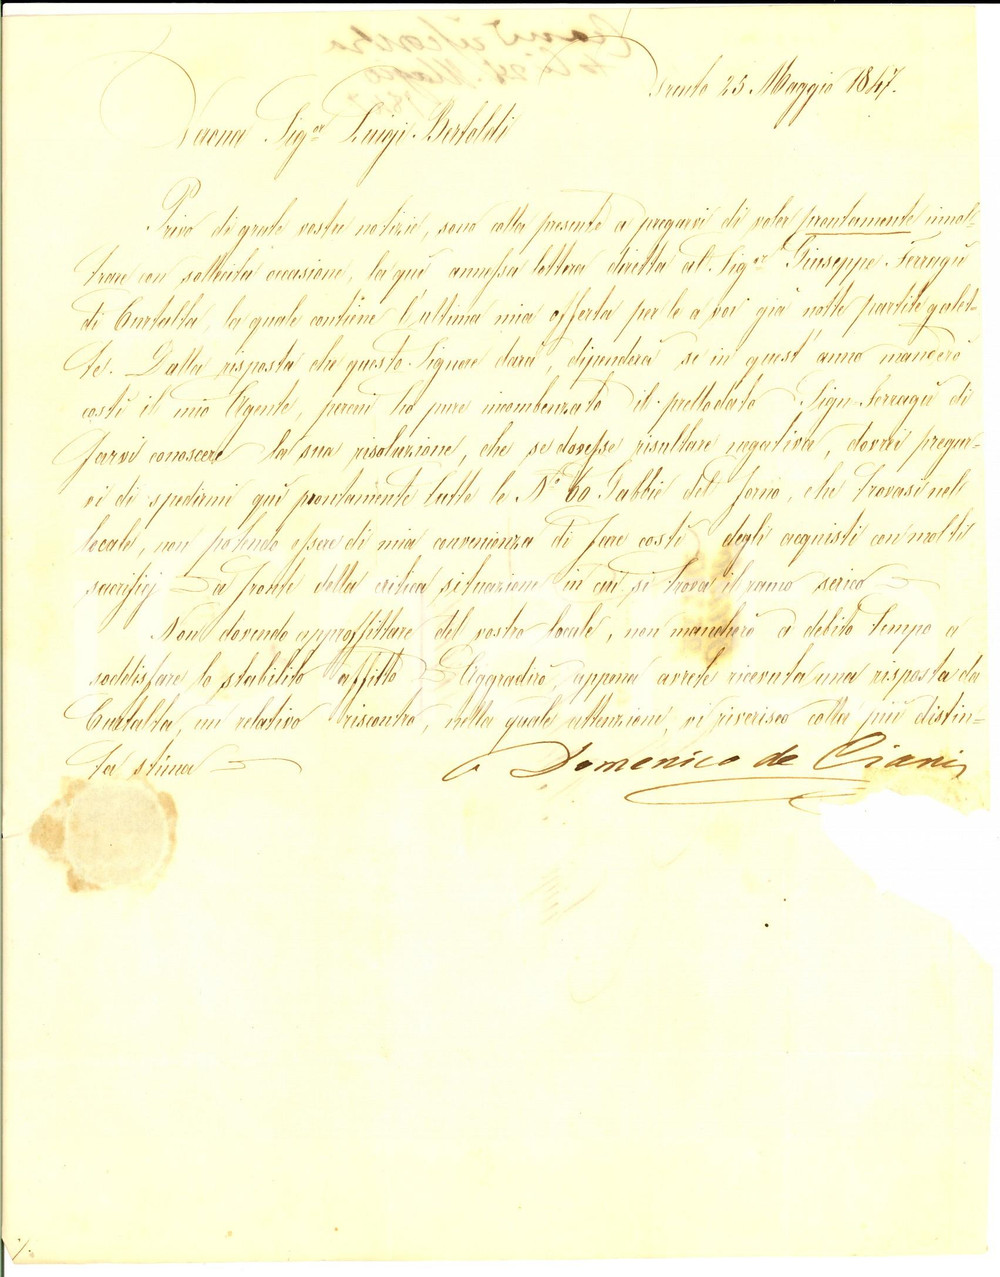 Trento 23 Maggio 1847.
Verona Sig.or Luigi Bertoldi
Privo di grate vostre notizie, sono colla presente a pregarvi di voler prontamente innol-
trare con sollecita occasione, la qui annessa lettera diretta al Sig.or Giuseppe Ferragù
di Curtalta, la quale contiene l'ultima mia offerta per le a voi già notte partite galet-
te. Dalla risposta che questo Signore darà, dipenderà se in quest'anno manderò
costì il mio Agente, perciò ho pure incombenzato il prellodato Sign. Ferragù di
farvi conoscere la sua risoluzione, che se dovesse risultare negativa, dovrei pregar-
vi di spedirmi qui prontamente tutte le N.o 60 Gabbie del forno, che trovasi nel
locale, non potendo essere di mia convenienza di fare costì degli acquisti con molti
sacrifizj a fronte della critica situazione in cui si trova il ramo serico
Non dovendo approffittare del vostro locale, non mancherò a debito tempo a
soddisfare lo stabilito affitto Aggradirò, appena avrete ricevuta una risposta da
Curtalta, un relativo riscontro, nella quale attenzione, vi riverisco colla più distin-
ta stima
Domenico de Ciani